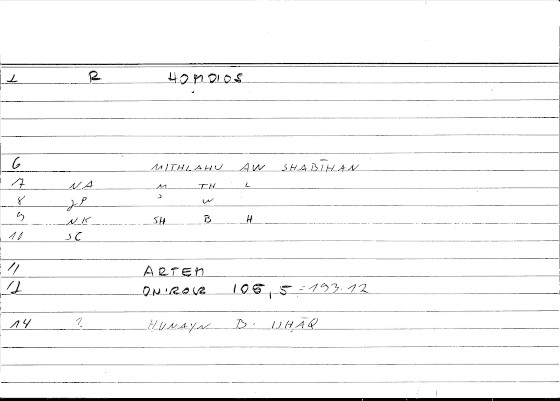 1 R HOMOIOS
6 MITHLAHU AW SHABĪHAN
7 NA M TH L
8 JP ʾ W
9 NK SH B H
10 JC
11 ARTEM
12 ONIROCR 105,5 = 193.12
14 ? HUNAYN B. ISHĀQ